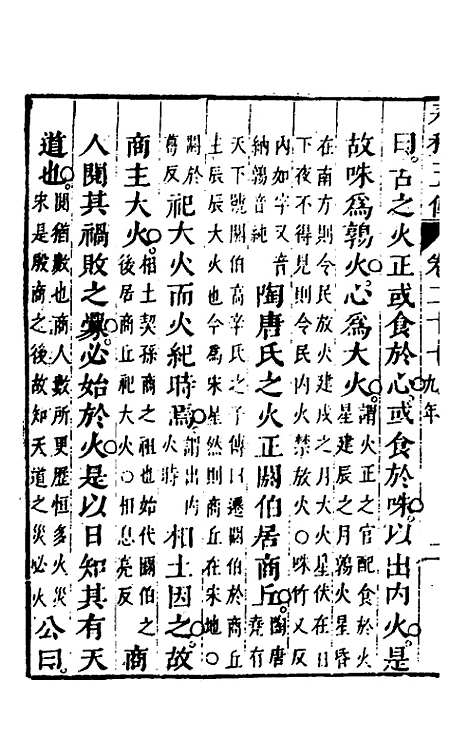 卷二十七 九年 一
曰古之火正或食於心或食於咮以出內火是
故咮爲鶉火心爲大火
謂火正之官配食於火
星建辰之月鶉火星昏
在南方則令民放火建戌之月大火星伏在日
下夜不得見則令民內火禁放火○咮竹又反
內如字又音
納鶉音純
陶唐氏之火正閼伯居商丘
陶唐
堯有
天下號閼伯高辛氏之子傳曰遷閼伯於商丘
主辰辰大火也今爲宋星然則商丘在宋地○
閼於
葛反
祀大火而火紀時焉
謂出內
火時
相土因之故
商主大火
相土契孫商之祖也始代閼伯之
後居商丘祀大火○相息亮反
商
人閱其禍敗之釁必始於火是以日知其有天
道也
閱猶數也商人數所更歷恒多火災
宋是殷商之後故知天道之災必火
公曰